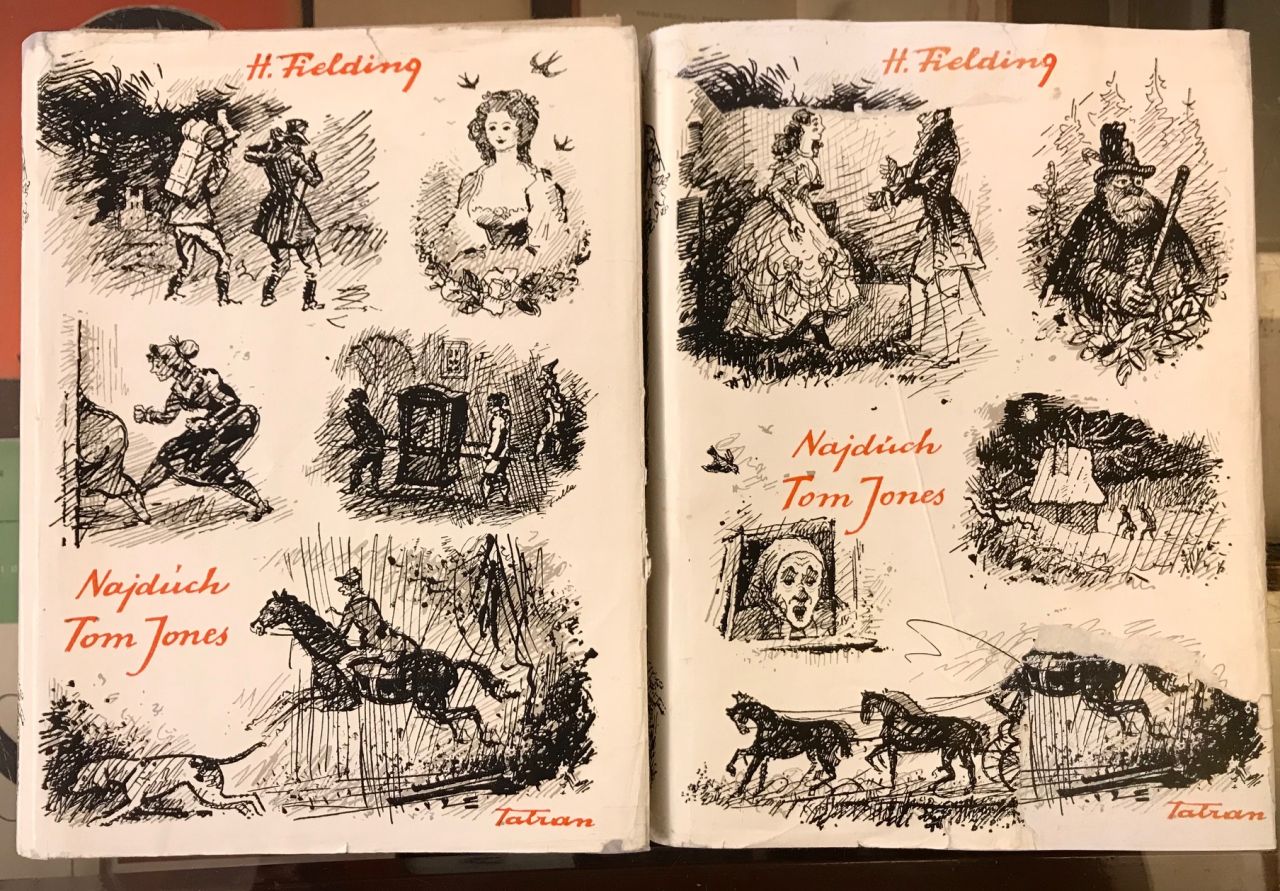 H. Fielding
Najdúch
Tom Jones
Tatran
H. Fielding
Najdúch
Tom Jones
Tatran